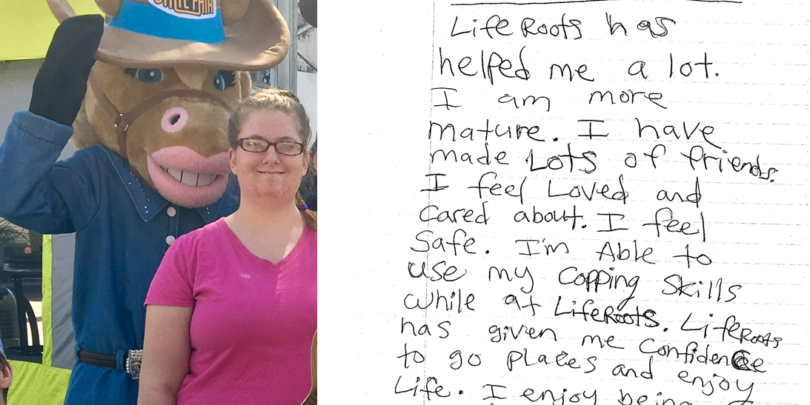 STATE FAIR
LifeRoots has
helped me a lot.
I am more
mature. I have
made Lots of friends.
I feel Loved and
cared about. I feel
Safe. I'm Able to
use my Copping Skills
while at LifeRoots. LifeRoots
has given me Confidence
to go places and enjoy
Life. I enjoy being